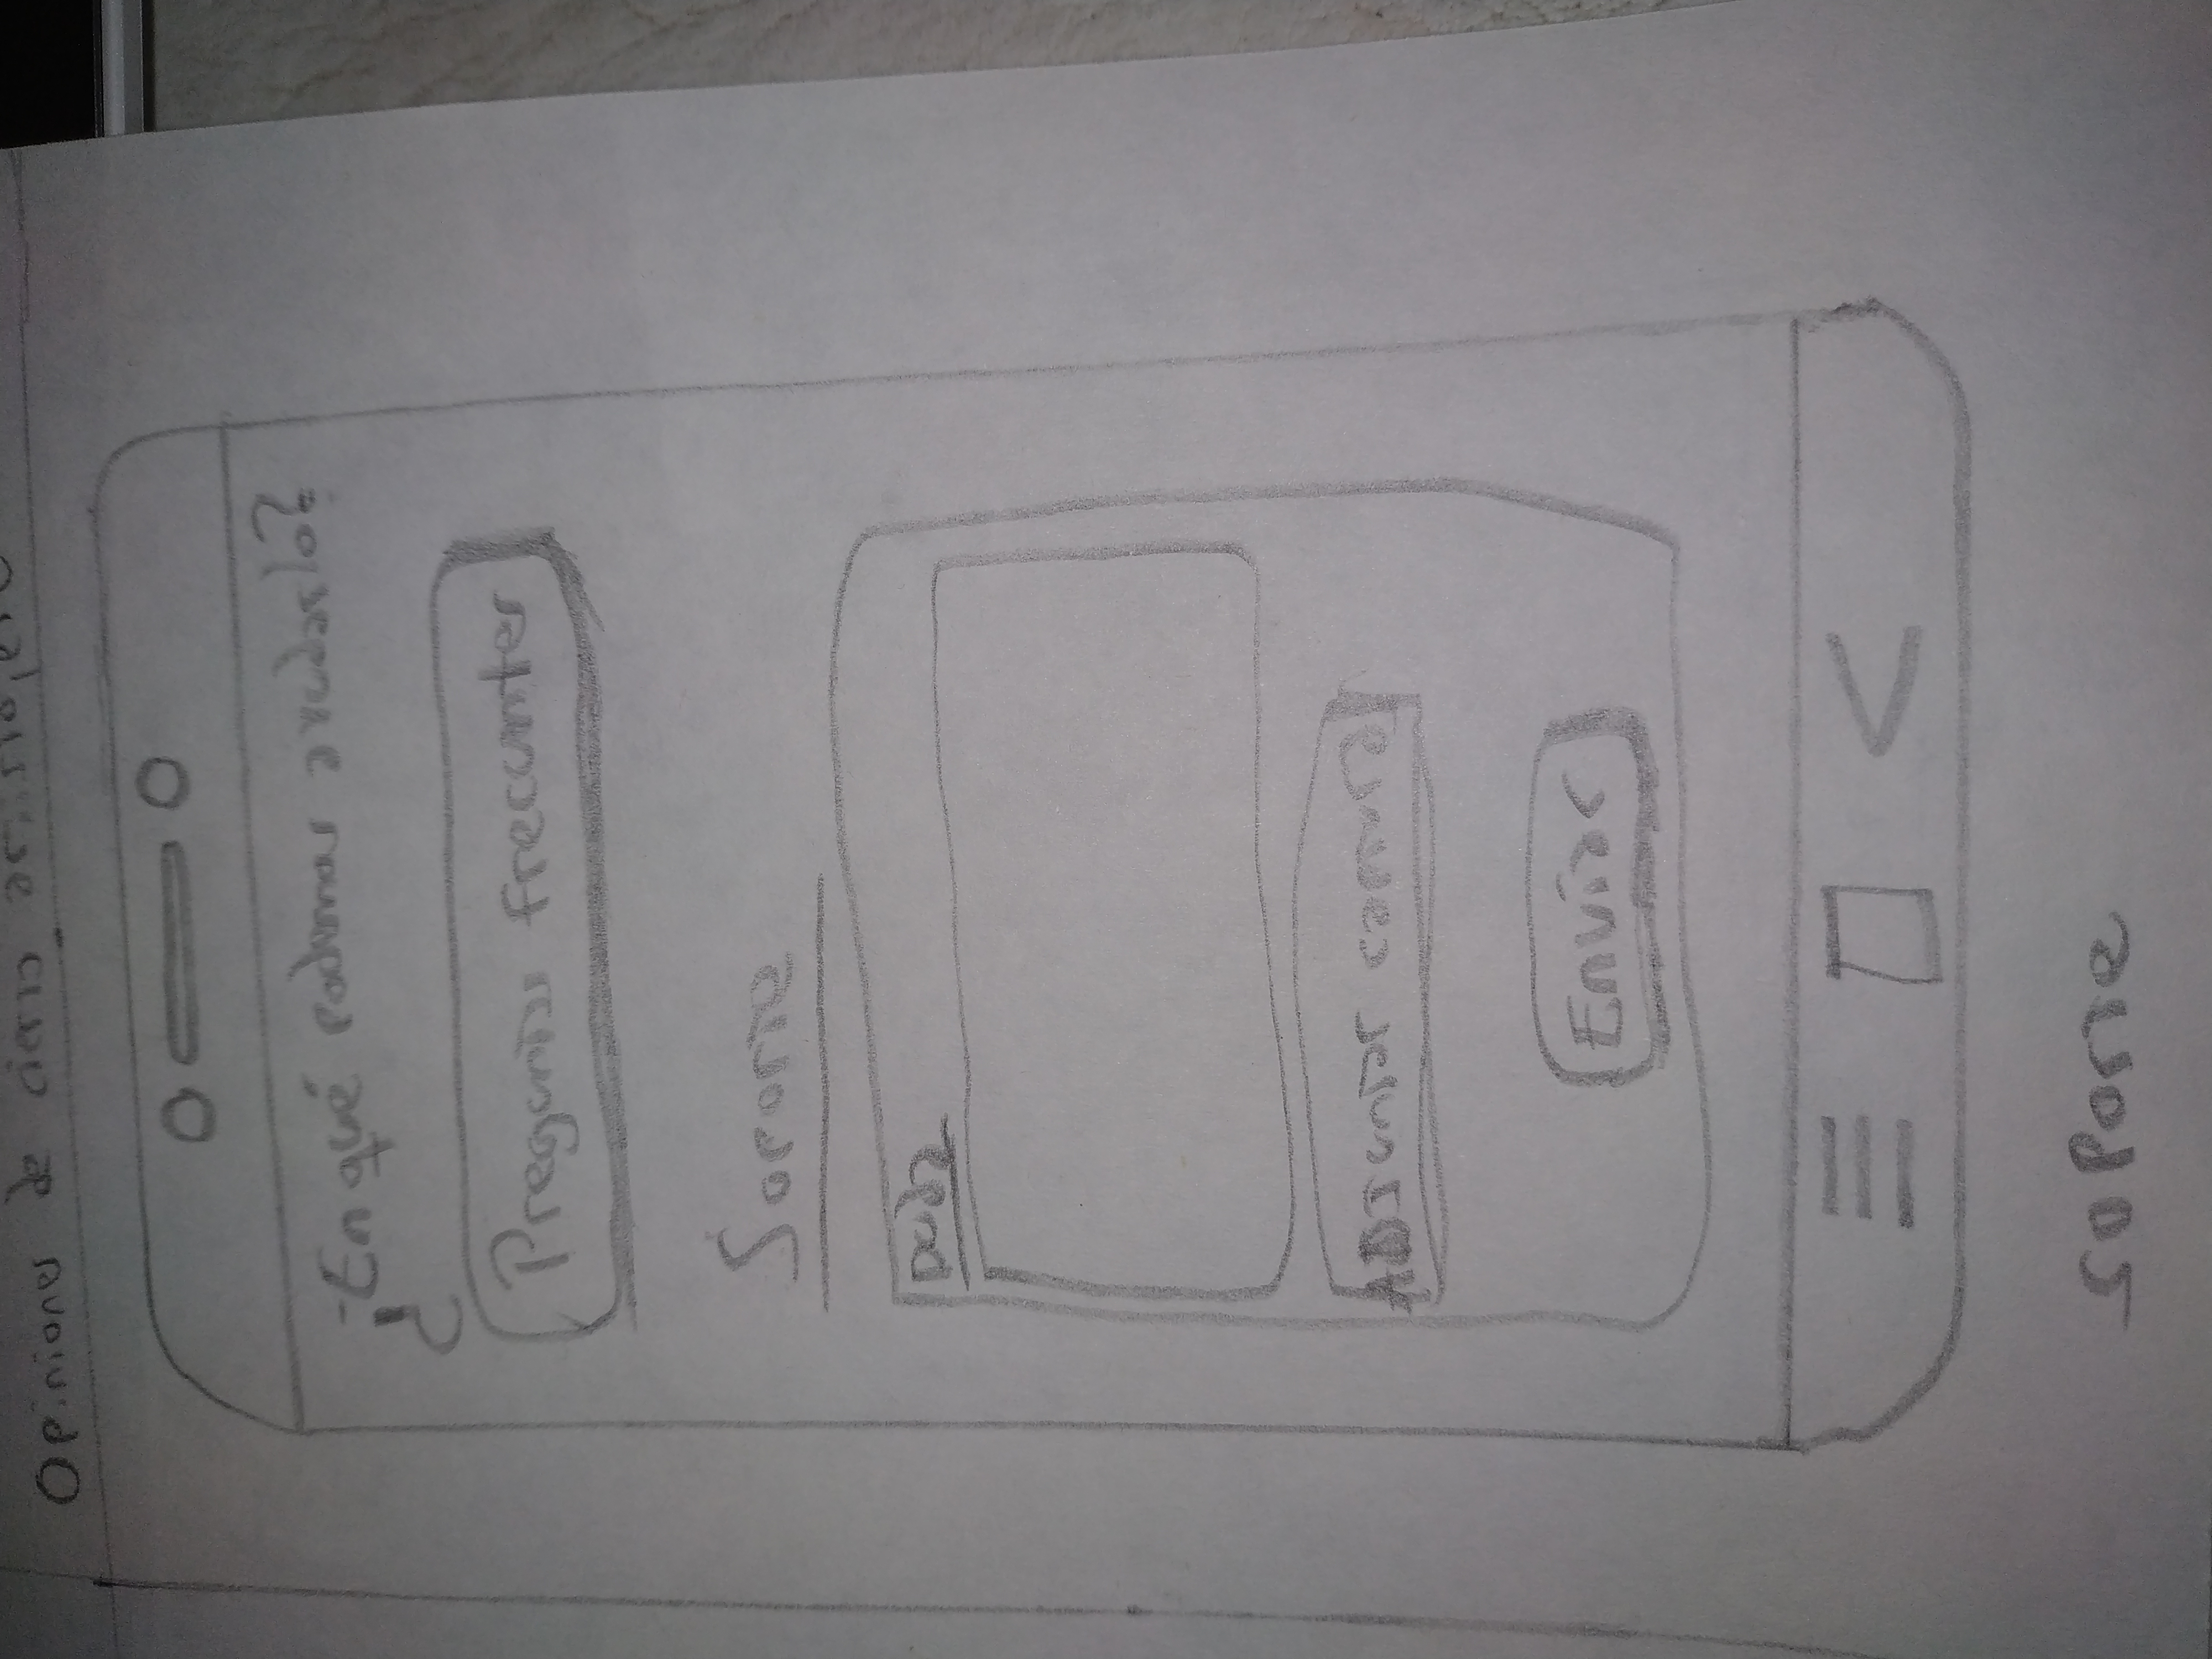 Opiniones de cierto
¿En qué podemos ayudarlo?
Preguntas frecuntes
Soporte
Duda
ADJuntar captura
Enviar
soporte